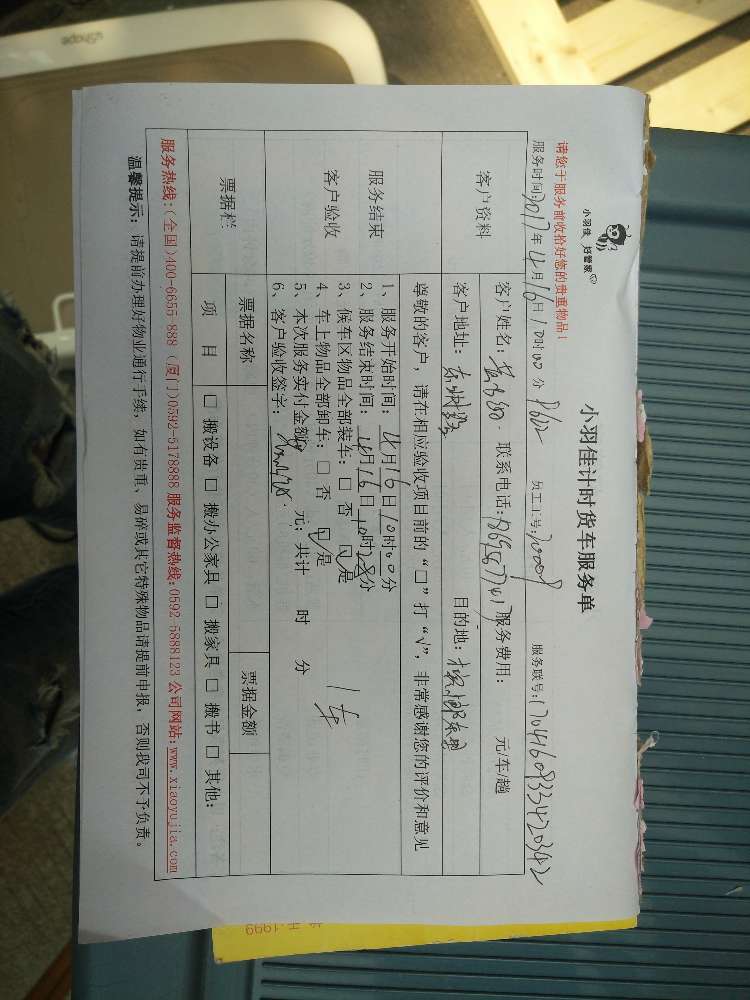 小羽佳 好管家
小羽佳计时货车服务单
请您于服务前收拾好您的贵重物品!
服务时间:2017年4月16日10时00分 员工工号: 服务联号:1704160933420342
客户资料
客户姓名: 联系电话: 服务费用: 元/车/趟
客户地址: 目的地:
尊敬的客户,请在相应验收项目前的“□”打“√”,非常感谢您的评价和意见
服务结束
客户验收
1、服务开始时间:4月16日10时00分
2、服务结束时间:4月16日10时28分
3、候车区物品全部装车:□否 ☑是
4、车上物品全部卸车:□否 ☑是
5、本次服务实付金额 元;共计 时 分
1车
6、客户验收签字:
票据栏
票据名称 票据金额
项目 □搬设备 □搬办公家具 □搬家具 □搬书 □其他:
服务热线:(全国)400-6655 888 (厦门)0592-5178888 服务监督热线:0592 5888123 公司网站:www.xiaoyujia.com
温馨提示:请提前办理好物业通行手续,如有贵重、易碎或其它特殊物品请提前申报,否则我司不予负责。